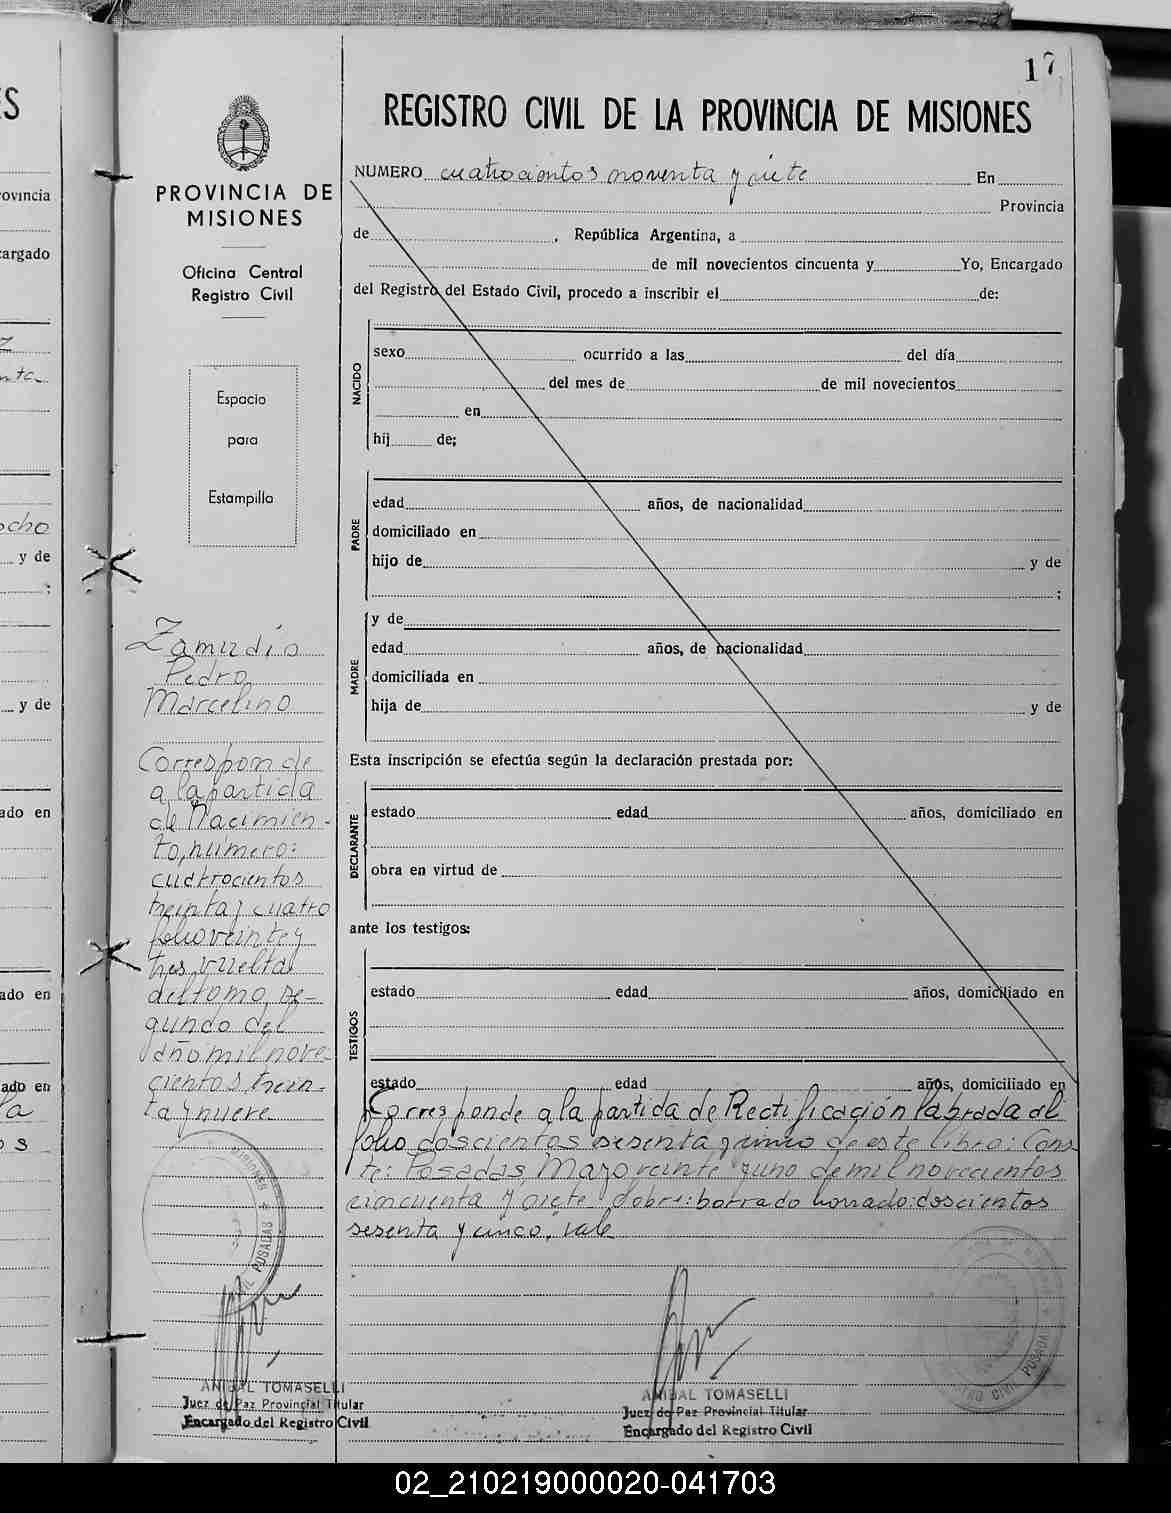 17
REGISTRO CIVIL DE LA PROVINCIA DE MISIONES
PROVINCIA DE
MISIONES
Oficina Central
Registro Civil
Espacio
para
Estampilla
Zamudio
Pedro
Marcelino
Corresponde
a la partida
de Nacimien-
to, número:
cuatrocientos
treinta y cuatro
folio veinte y
tres vuelta
del tomo se-
gundo del
año mil nove-
cientos trein-
ta y nueve
ANIBAL TOMASELLI
Juez de Paz Provincial Titular
Encargado del Registro Civil
NUMERO cuatrocientos noventa y siete En
Provincia
de , República Argentina, a
de mil novecientos cincuenta y Yo, Encargado
del Registro del Estado Civil, procedo a inscribir el de:
NACIDO
sexo ocurrido a las del día
del mes de de mil novecientos
en
hij de;
PADRE
edad años, de nacionalidad
domiciliado en
hijo de y de
;
MADRE
y de
edad años, de nacionalidad
domiciliada en
hija de y de
Esta inscripción se efectúa según la declaración prestada por:
DECLARANTE
estado edad años, domiciliado en
obra en virtud de
ante los testigos:
TESTIGOS
estado edad años, domiciliado en
estado edad años, domiciliado en
Corresponde a la partida de Rectificación labrada al
folio doscientos sesenta y cinco de este libro: Cons-
te: Posadas, Mayo veinte y uno de mil novecientos
cincuenta y siete sobre: borrado borrado: doscientos
sesenta y cinco, Vale
ANIBAL TOMASELLI
Juez de Paz Provincial Titular
Encargado del Registro Civil
CIVIL POSADAS
REGISTRO CIVIL POSADAS
ES
ovincia
cargado
ocho
y de
;
y de
ado en
ado en
ado en
02_210219000020-041703